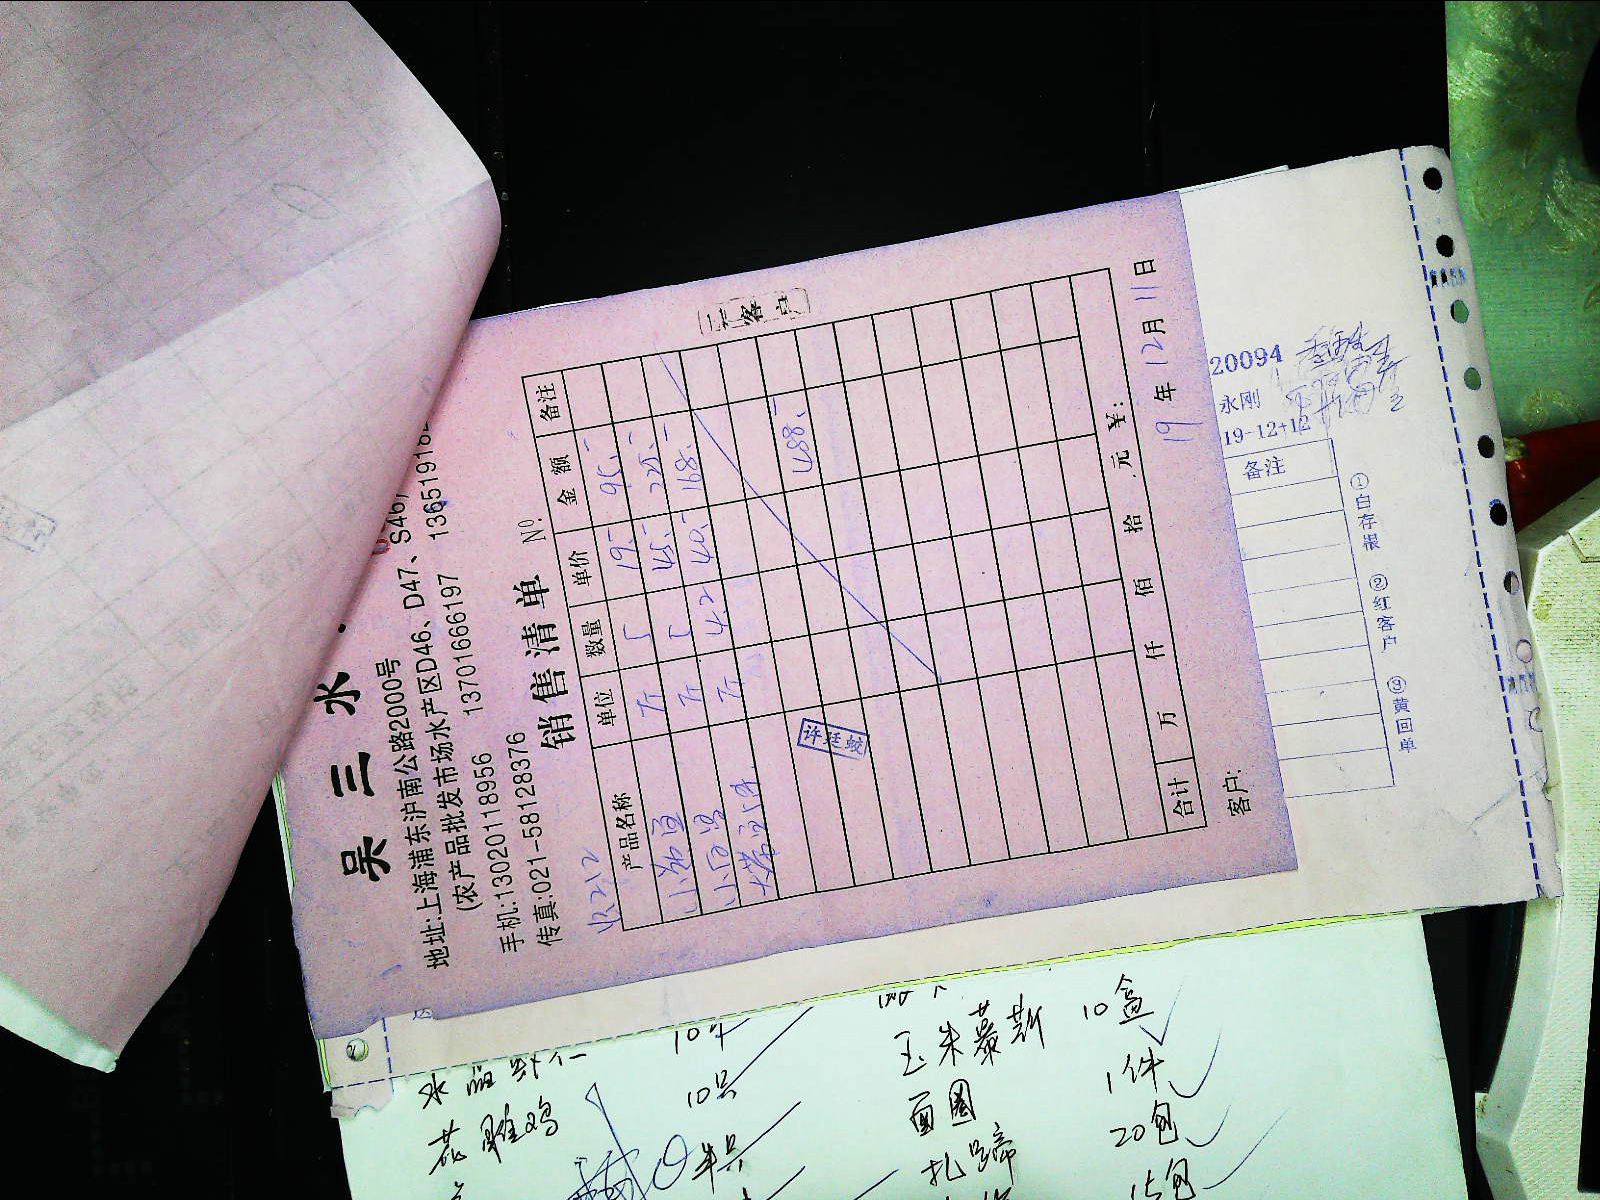 吴 三 水
地址:上海浦东沪南公路2000号
(农产品批发市场水产区D46、D47、S46,
手机:13020118956 13701666197 1365191
传真:021-58128376
销售清单 Nº
收212
产品名称 单位 数量 单价 金额 备注
小 斤 5 19.- 95.-
小白 斤 5 45.- 225.-
大带 斤 4.2 40.- 168.-
488.-
许廷蛟
合计 万 仟 佰 拾 元 ¥:
客户: 19年12月11日
二 客户
20094
永刚
19-12-12
备注
①白存根 ②红客户 ③黄回单
水晶虾仁
花雕鸡 10只
半只
玉米慕斯 10盒
面圆 1件
扎蹄 20包
15包